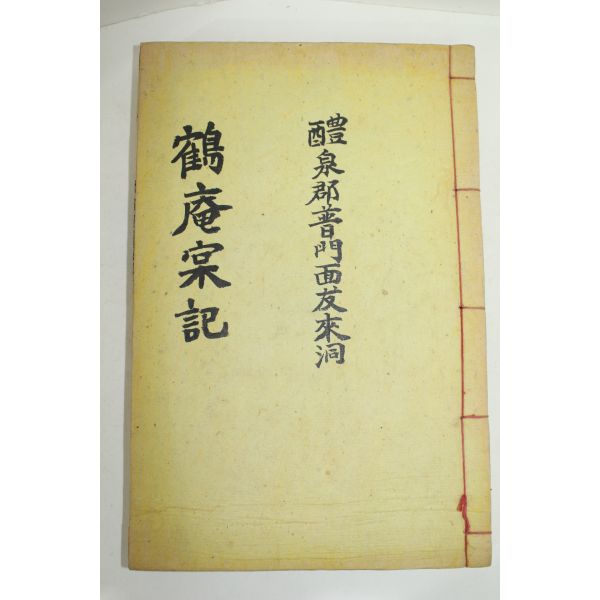 醴泉郡普門面友來洞
鶴庵宲記